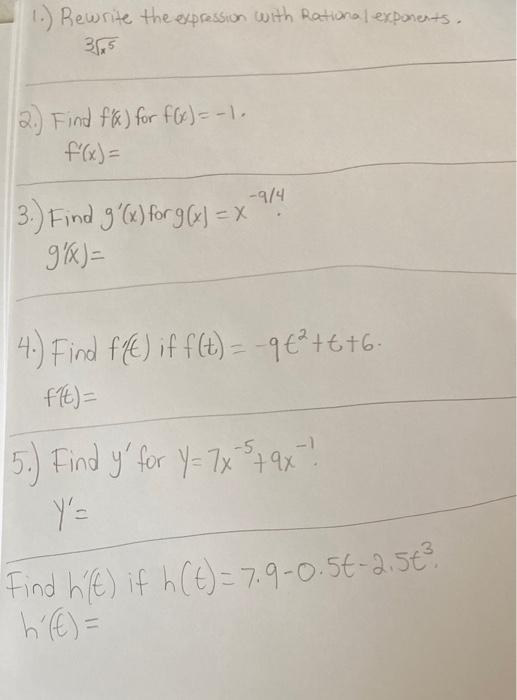 1.) Rewrite the expression with Rational exponents.
3√x⁵
2.) Find f'(x) for f(x) = -1.
f'(x) =
3.) Find g'(x) for g(x) = x⁻⁹ᐟ⁴.
g'(x) =
4.) Find f'(t) if f(t) = -9t² + t + 6.
f'(t) =
5.) Find y' for y = 7x⁻⁵ + 9x⁻¹.
y' =
Find h'(t) if h(t) = 7.9 - 0.5t - 2.5t³.
h'(t) =